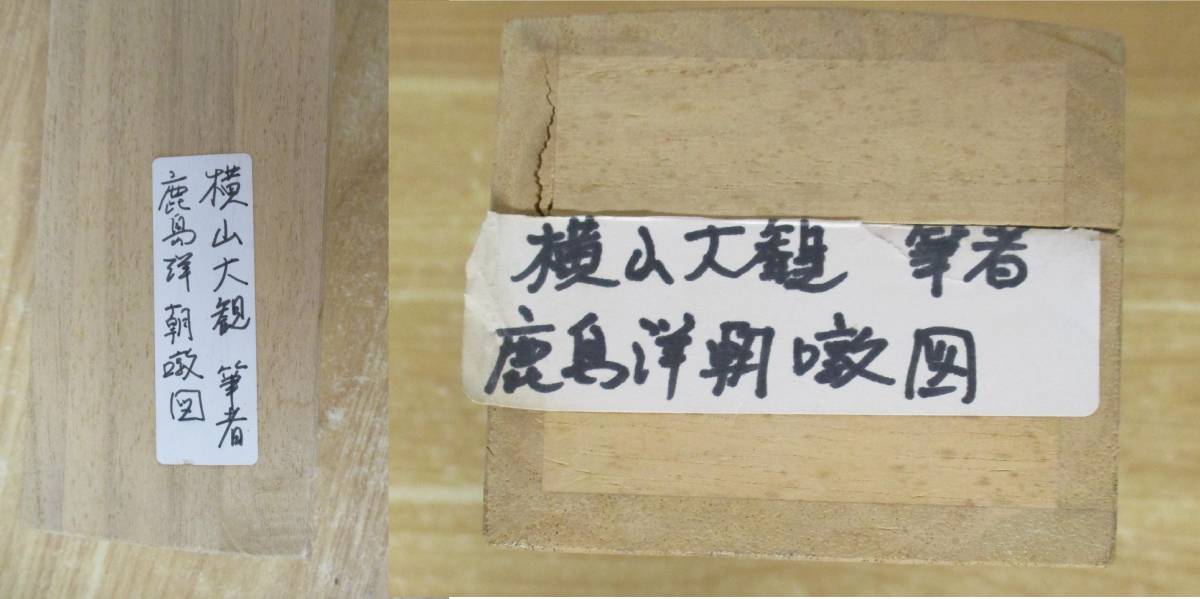 横山大観 筆者
鹿島洋朝暾図
横山大観 筆者
鹿島洋朝暾図